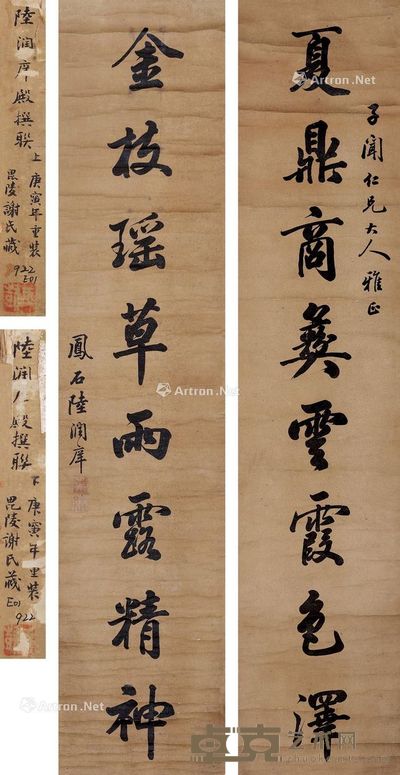 夏鼎商彝雲霞色澤
子聞仁兄大人雅正
金枝瑶草雨露精神
鳳石陸潤庠
陸潤庠殿撰聯
上 庚寅年重装
毘陵謝氏藏
922
E01
陸潤庠殿撰聯
下 庚寅年重装
毘陵謝氏藏
E01
922
Artron.Net
Artron.Net
Artron.Net
Artron.Net
Artron.Net